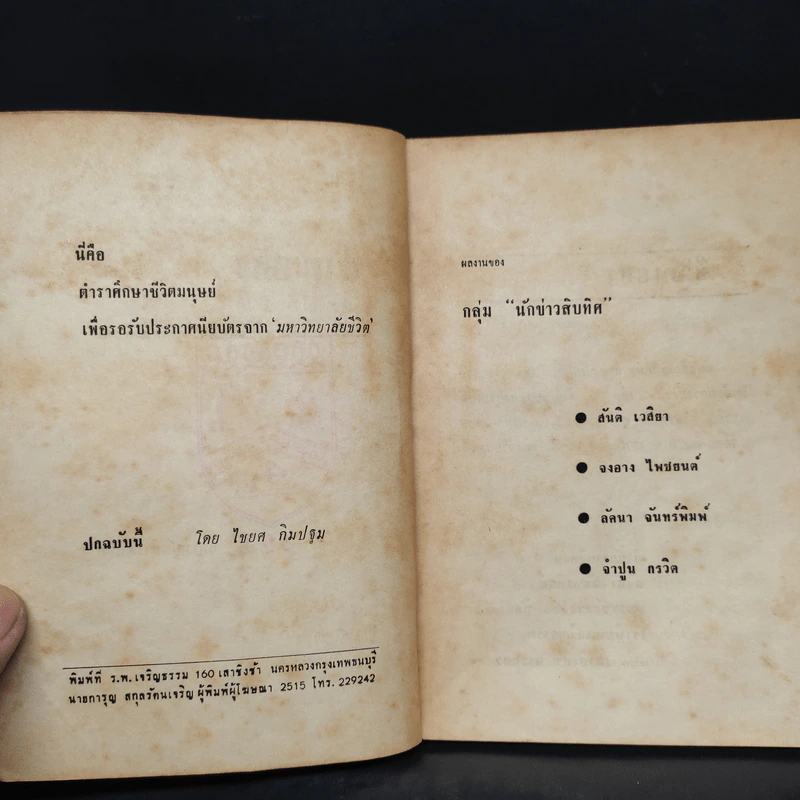 นี่คือ
ตำราศึกษาชีวิตมนุษย์
เพื่อรอรับประกาศนียบัตรจาก 'มหาวิทยาลัยชีวิต'
ปกฉบับนี้ โดย ไชยศ กิมปฐม
พิมพ์ที่ ร.พ. เจริญธรรม 160 เสาชิงช้า นครหลวงกรุงเทพธนบุรี
นายการุญ สกุลรัตนเจริญ ผู้พิมพ์ผู้โฆษณา 2515 โทร. 229242
ผลงานของ
กลุ่ม “นักข่าวสิบทิศ”
● สันติ เวสิยา
● จงอาง ไพชยนต์
● ลัคนา จันทร์พิมพ์
● จำปูน กรวิต